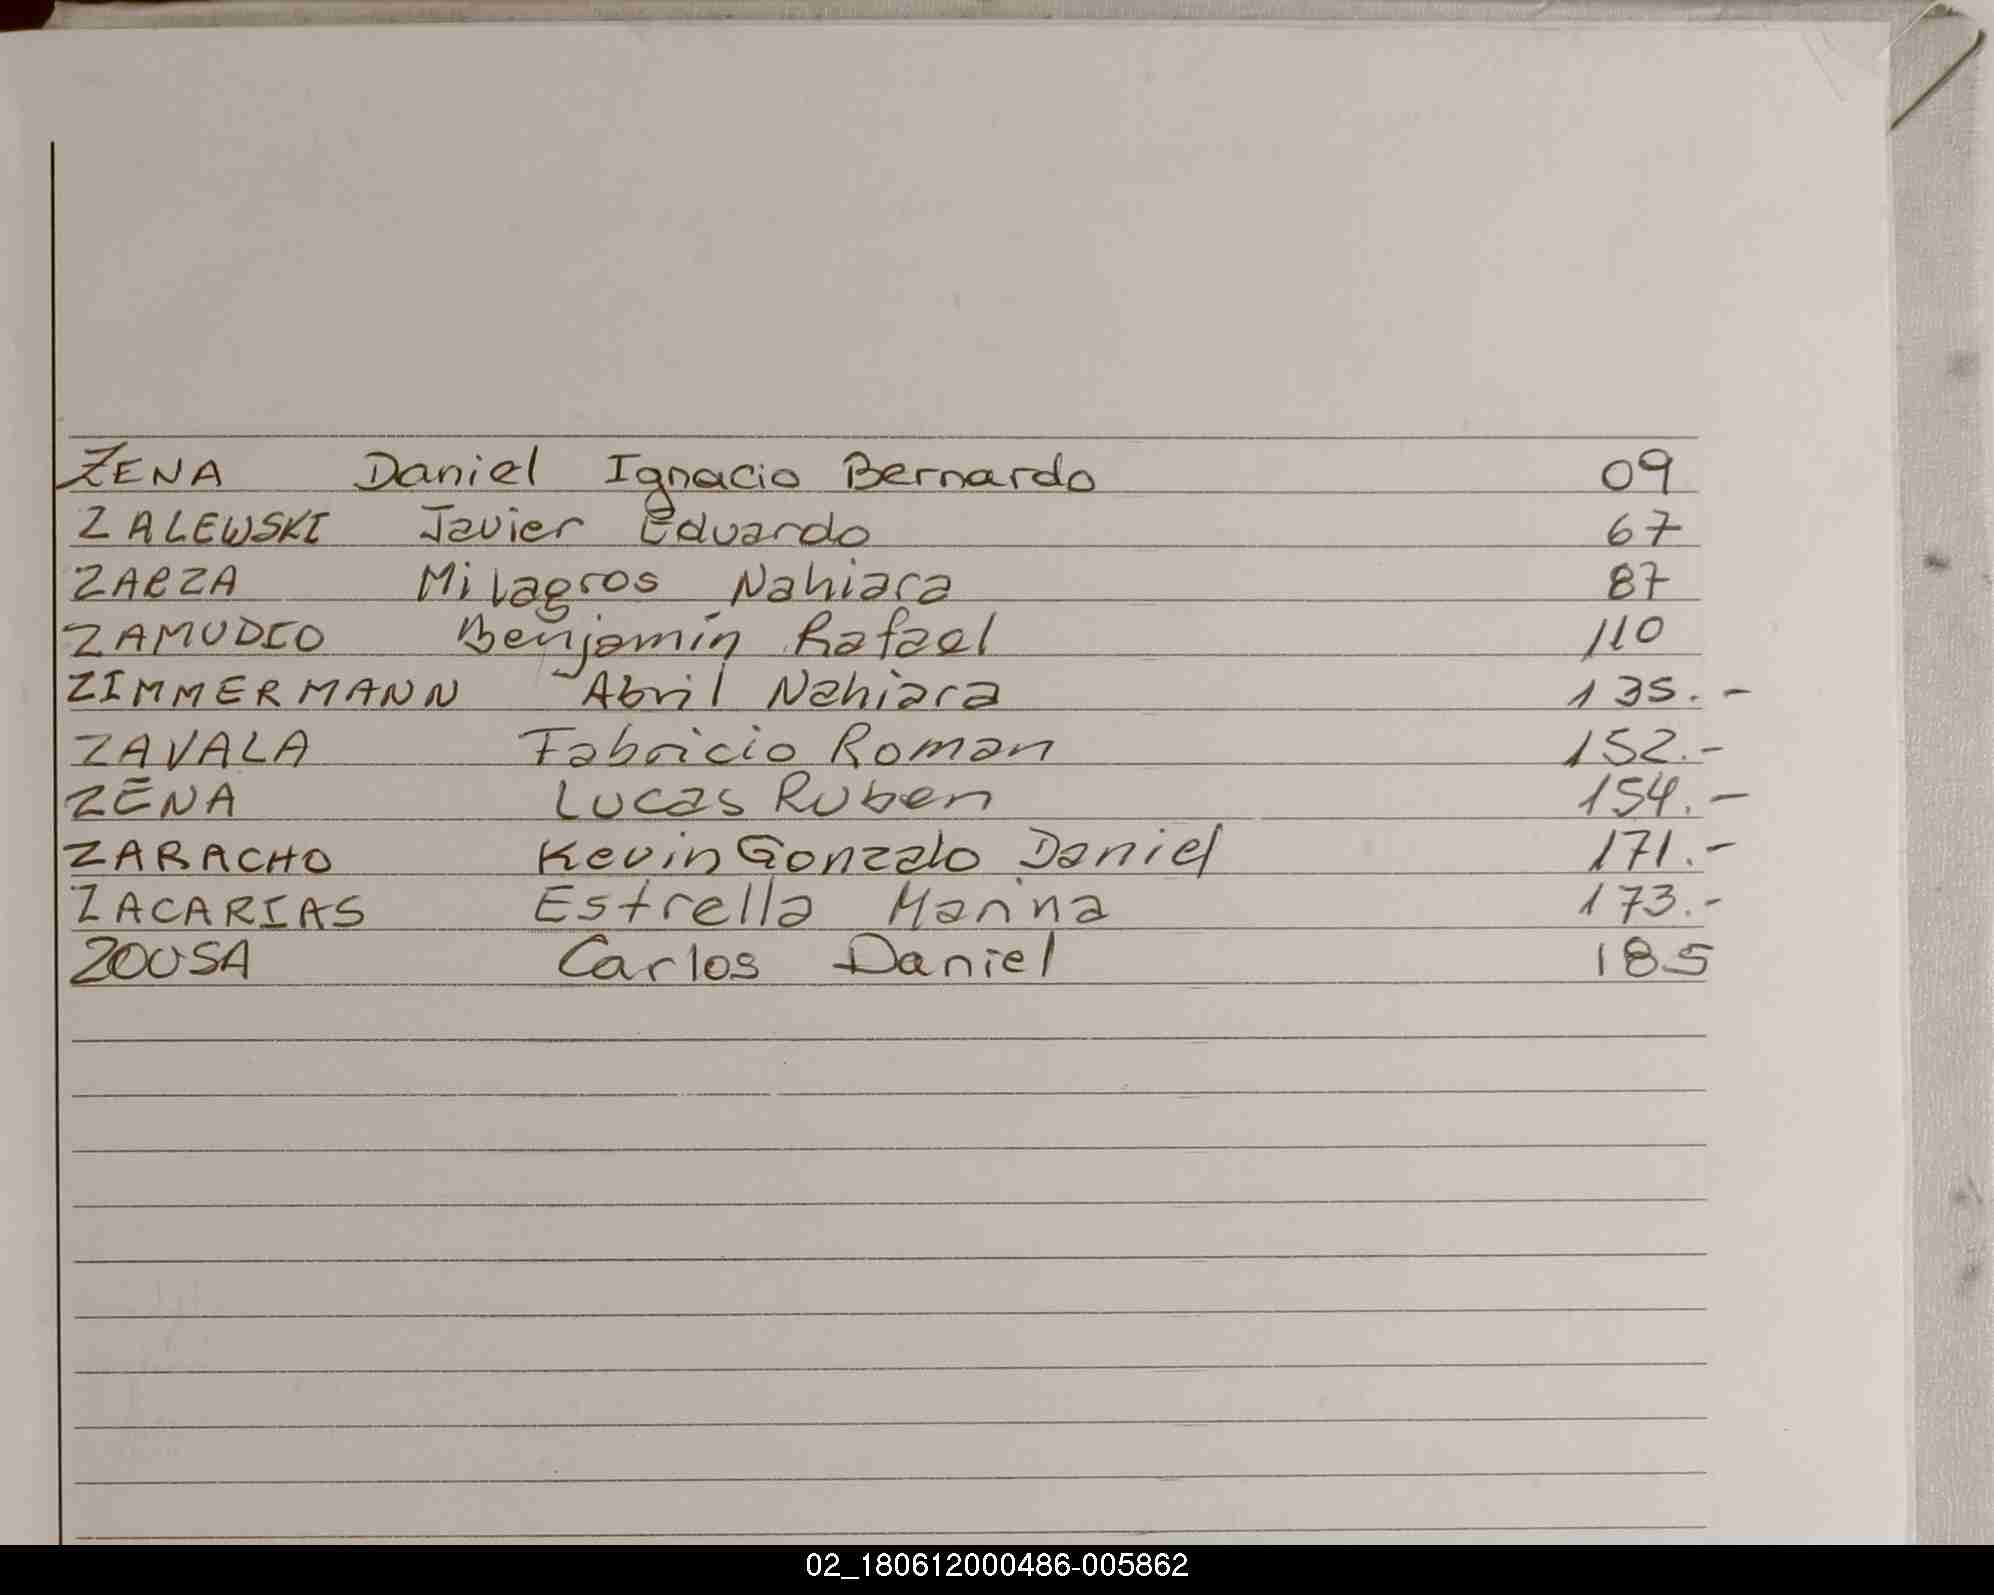 ZENA Daniel Ignacio Bernardo 09
ZALEWSKI Javier Eduardo 67
ZARZA Milagros Nahiara 87
ZAMUDIO Benjamín Rafael 110
ZIMMERMANN Abril Nahiara 135.-
ZAVALA Fabricio Roman 152.-
ZENA Lucas Ruben 154.-
ZARACHO Kevin Gonzalo Daniel 171.-
ZACARIAS Estrella Marina 173.-
ZOUSA Carlos Daniel 185
02_180612000486-005862